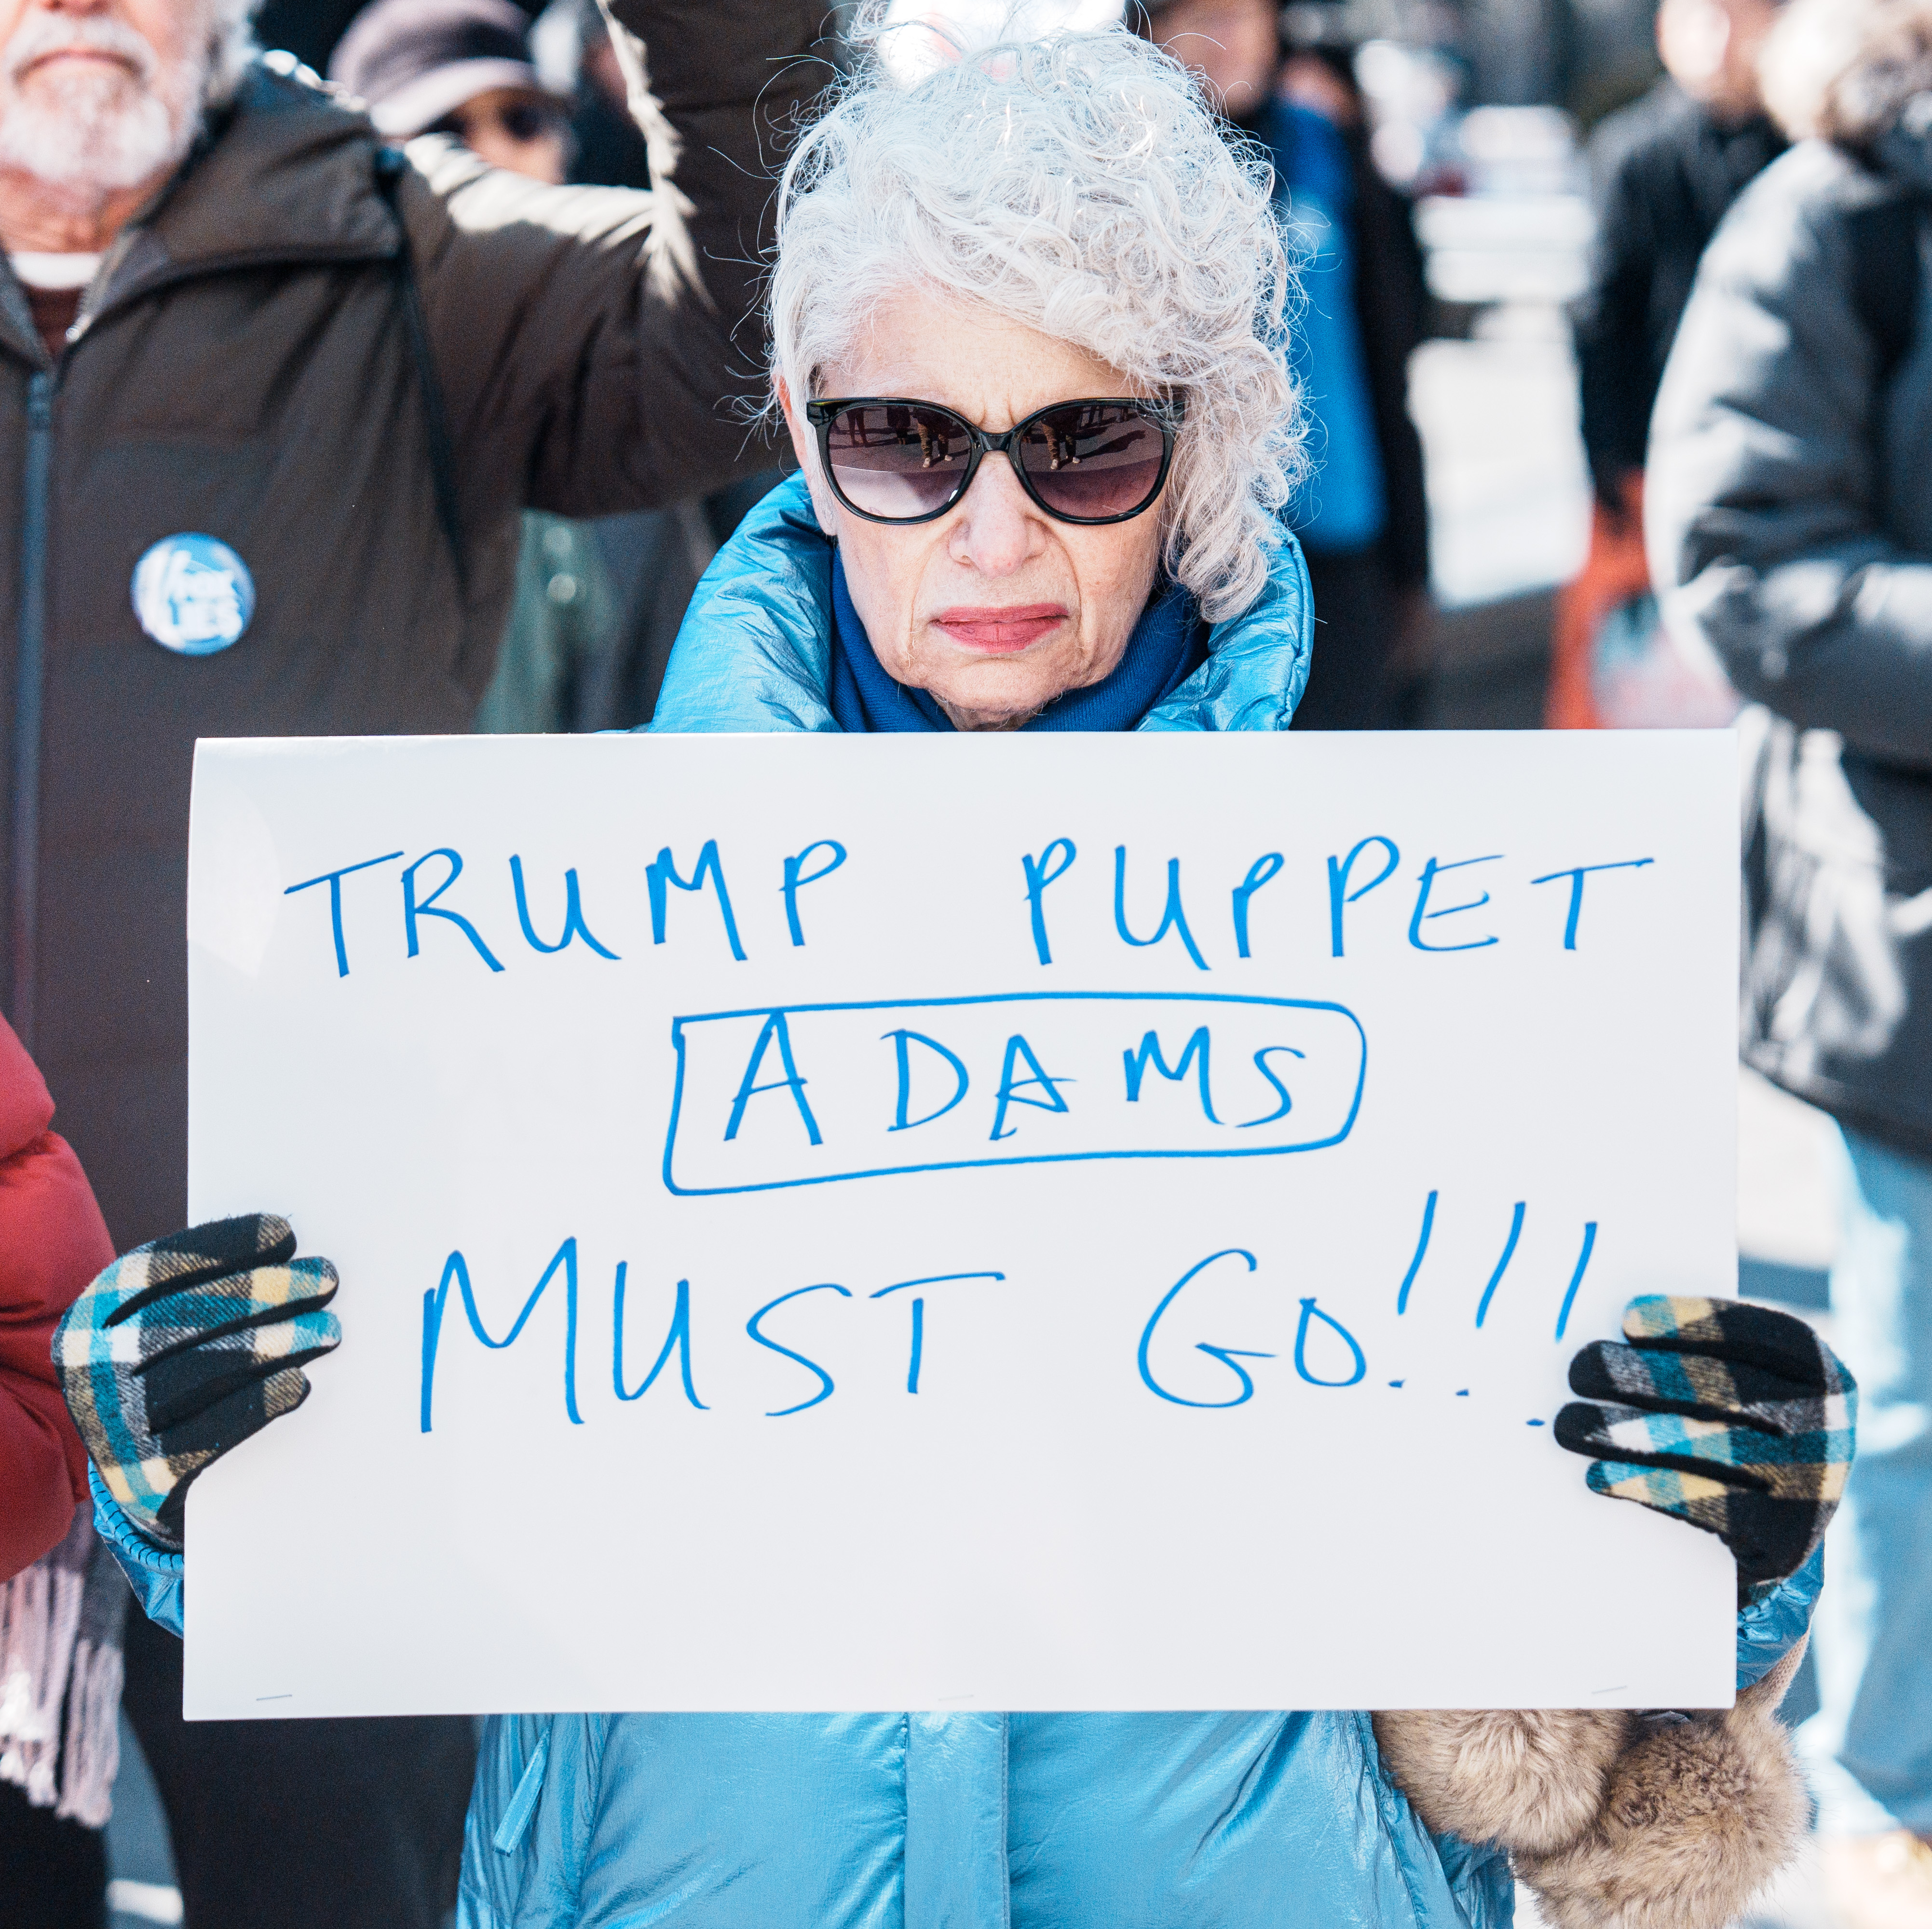 TRUMP PUPPET
ADAMS
MUST GO!!!
LIES